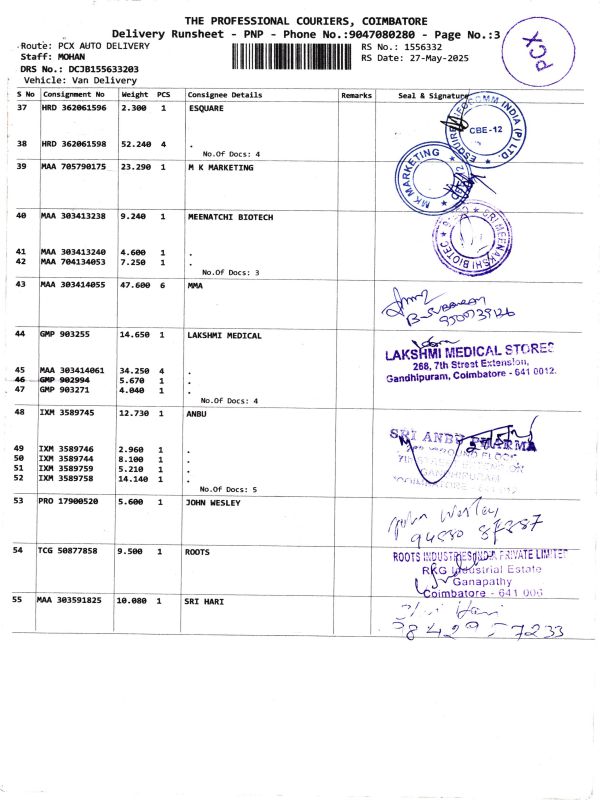 THE PROFESSIONAL COURIERS, COIMBATORE
Delivery Runsheet - PNP - Phone No.:9047080280 - Page No.:3
Route: PCX AUTO DELIVERY
RS No.: 1556332
Staff: MOHAN
RS Date: 27-May-2025
DRS No.: DCJB155633203
Vehicle: Van Delivery
PCX
S No Consignment No Weight PCS Consignee Details Remarks Seal & Signature
37 HRD 362061596 2.300 1 ESQUARE
CBE-12
38 HRD 362061598 52.240 4 .
No.Of Docs: 4
39 MAA 705790175 23.290 1 M K MARKETING
MK MARKETING
40 MAA 303413238 9.240 1 MEENATCHI BIOTECH
SRI MEENAKSHI BIOTEC
41 MAA 303413240 4.600 1 .
42 MAA 704134053 7.250 1 .
No.Of Docs: 3
43 MAA 303414055 47.600 6 MMA
44 GMP 903255 14.650 1 LAKSHMI MEDICAL
LAKSHMI MEDICAL STORES
268, 7th Street Extension,
Gandhipuram, Coimbatore - 641 0012.
45 MAA 303414061 34.250 4 .
46 GMP 902994 5.670 1 .
47 GMP 903271 4.040 1 .
No.Of Docs: 4
48 IXM 3589745 12.730 1 ANBU
SRI ANBU PHARMA
49 IXM 3589746 2.960 1 .
50 IXM 3589744 8.100 1 .
51 IXM 3589759 5.210 1 .
52 IXM 3589758 14.140 1 .
No.Of Docs: 5
53 PRO 17900520 5.600 1 JOHN WESLEY
John Wesley
54 TCG 50877858 9.500 1 ROOTS
ROOTS INDUSTRIES INDIA PRIVATE LIMITED
RKG Industrial Estate
Ganapathy
Coimbatore - 641 006
55 MAA 303591825 10.080 1 SRI HARI
Sri Hari